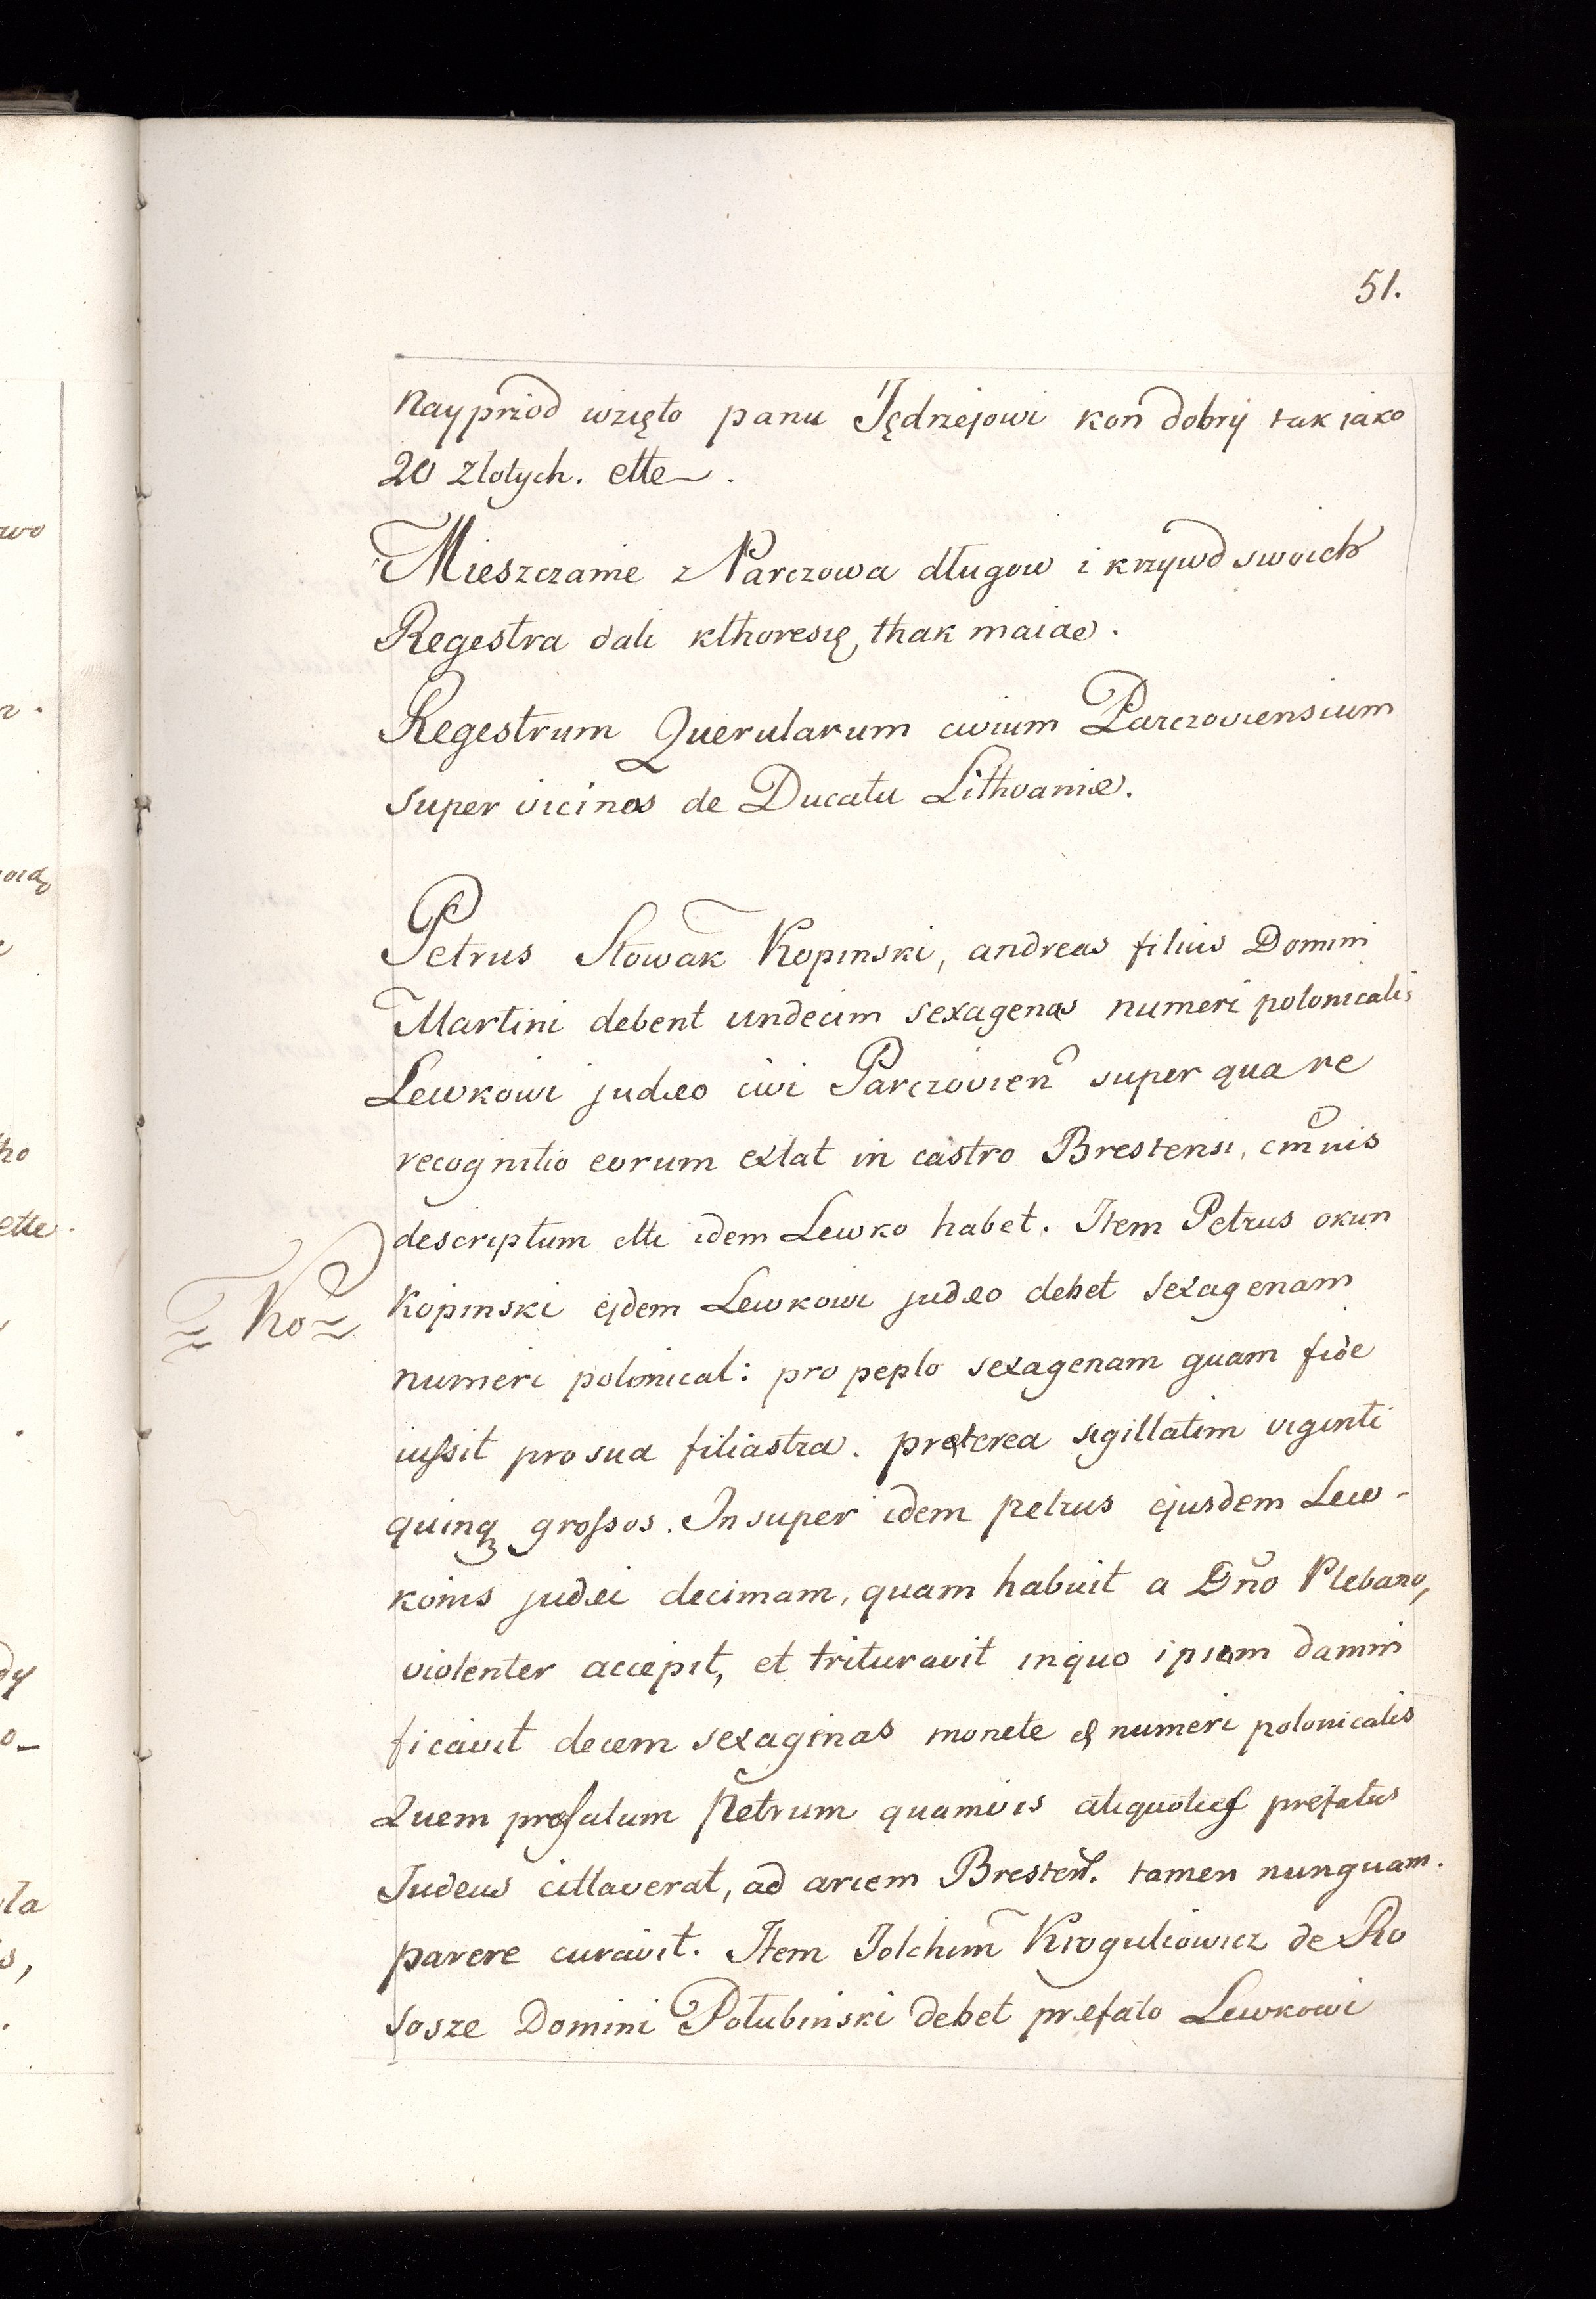 51.
Nayprzod wzięto panu Jędrzejowi kon dobry tak iako
20 zlotych. ette.
Mieszczanie z Parczowa długow i krzywd swoich
Regestra dali kthoresię thak maiae.
Regestrum Querularum civium Parczoviensium
super vicinos de Ducatu Lithvaniæ.
Petrus Słowak Kopinski, andreas filius Domini
Martini debent undecim sexagenas numeri polonicalis
Lewkowi judæo civi Parczovien super qua re
recognitio eorum extat in castro Brestensi,
descriptum ette idem Lewko habet. Item Petrus okun
Kopinski ejdem Lewkowi judæo debet sexagenam
Ko
numeri polonical: pro peplo sexagenam quam fide
iussit pro sua filiastra. preterea sigillatim viginti
quinq grossos. Insuper idem petrus ejusdem Lew-
konis judæi decimam, quam habuit a Dño Plebano,
violenter accepit, et trituravit inquo ipsum damni
ficavit decem sexaginas monete & numeri polonicalis
Quem prefatum Petrum quamvis aliquoties prefatus
Judeus cittaverat, ad arcem Bresten. tamen nunquam.
parere curavit. Item Jolchim Kroguliowicz de Ro
sosze Domini Połubinski debet præfato Lewkowi